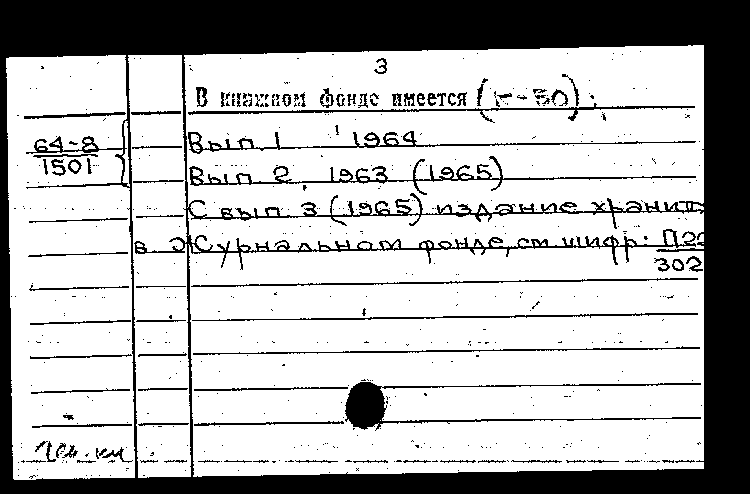 3
В книжном фонде имеется (К-50):
64-8 Вып. 1 1964
1501
Вып. 2. 1963 (1965)
С вып. 3 (1965) издание хранитс
в журнальном фонде, см шифр: П22
302